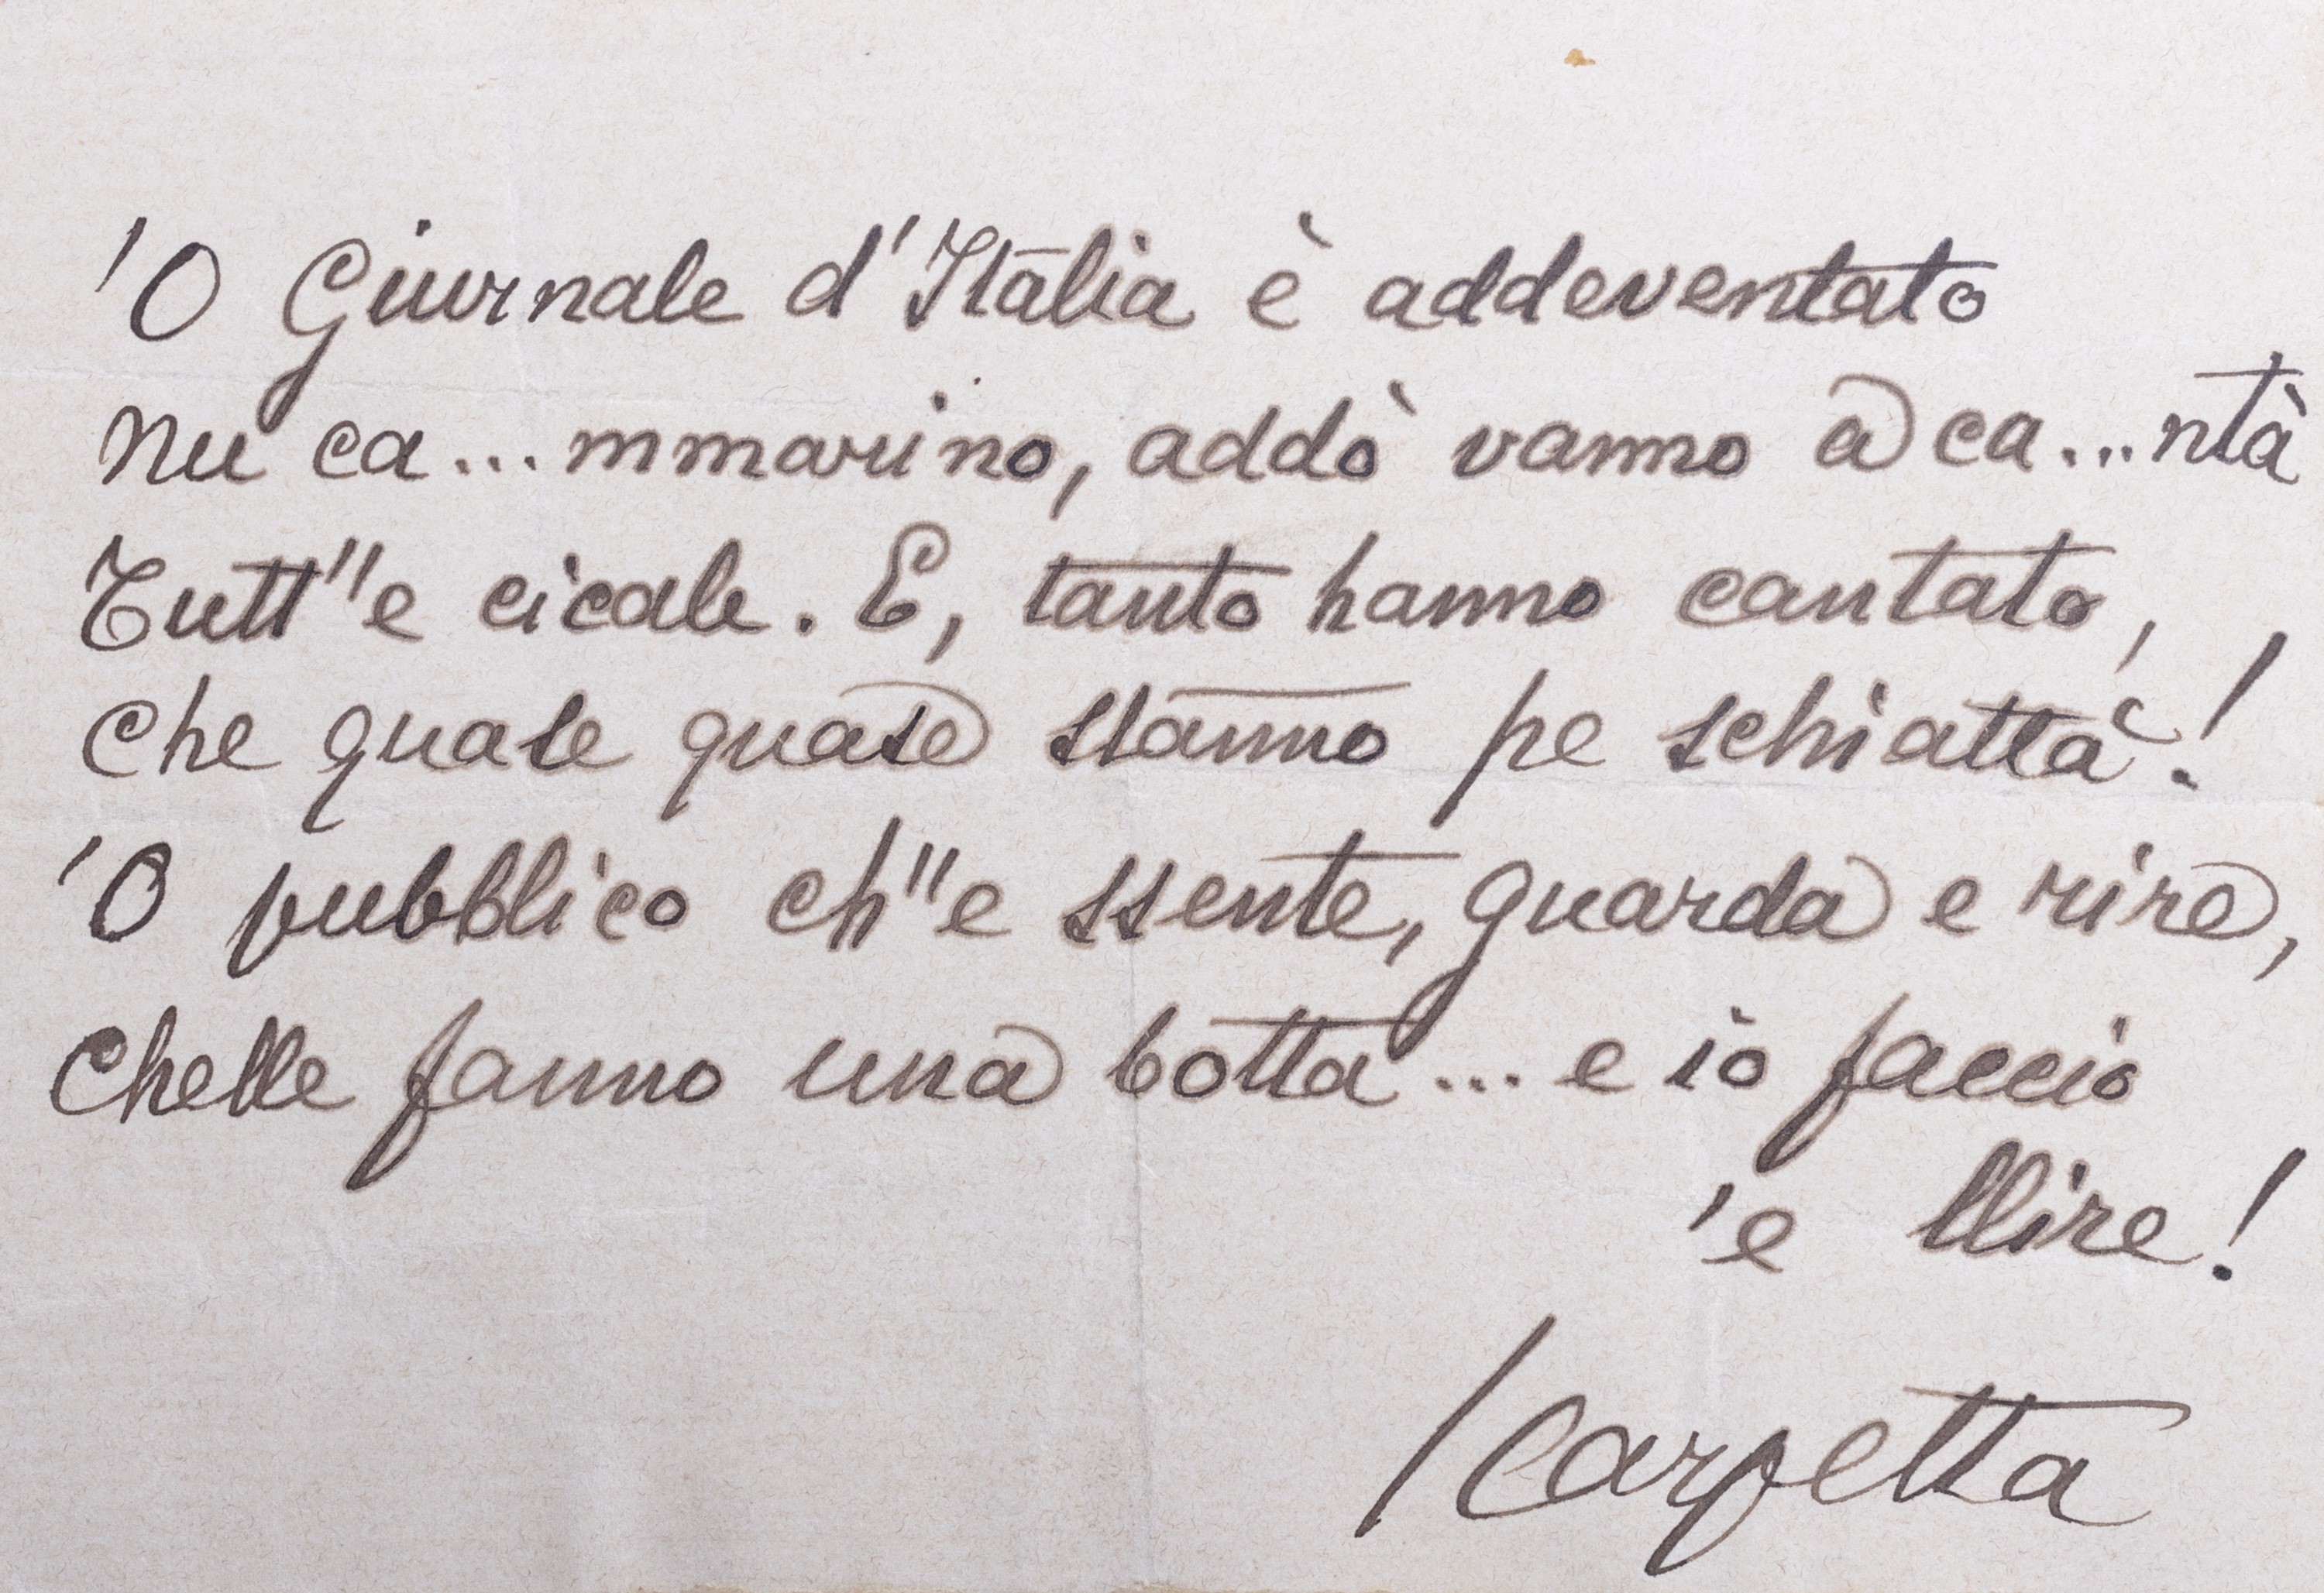 'O Giurnale d'Italia è addeventato
nu ca...mmarino, addò vanno a ca...ntà
Tutt''e cicale. E, tanto hanno cantato,
che quase quase stanno pe schiattà!
'O pubblico ch''e ssente, guarda e rire,
Chelle fanno una botta... e io faccio
'e llire!
Scarpetta